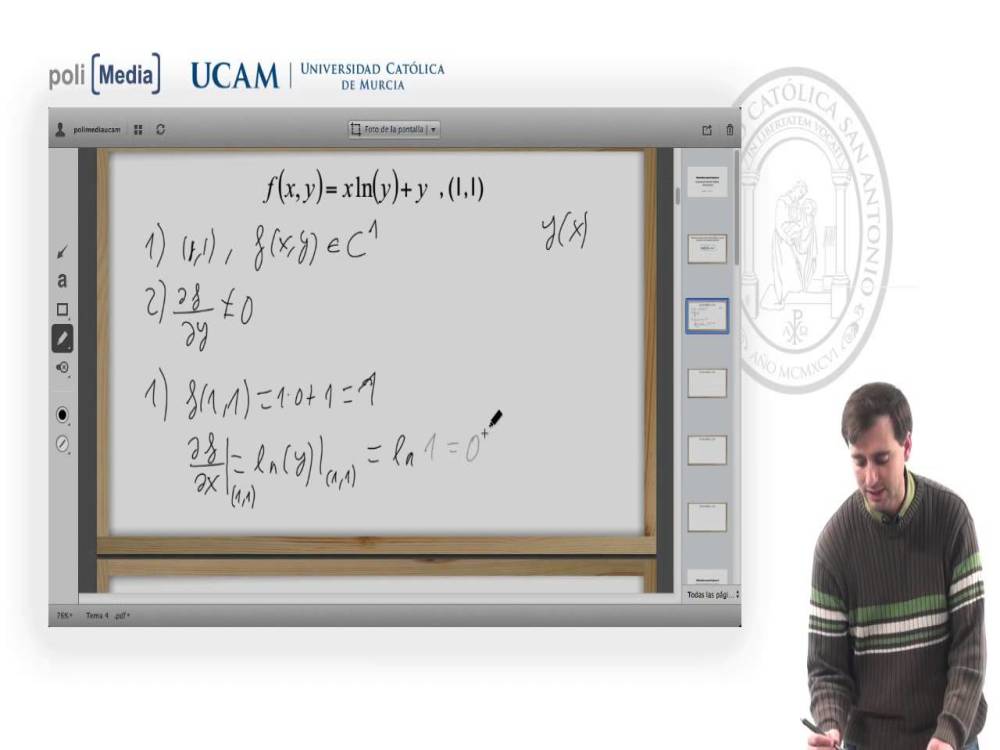 poli [Media] UCAM UNIVERSIDAD CATÓLICA
DE MURCIA
polimediaucam Foto de la pantalla
f(x,y)=xln(y)+y ,(1,1)
1) (1,1), f(x,y) ∈ C^1 y(x)
2) ∂f/∂y ≠ 0
1) f(1,1)=1·0+1=1
∂f/∂x|(1,1) = ln(y)|(1,1) = ln 1 = 0
a
Todas las pági...
76% Tema 4 .pdf
CATÓLICA SAN ANTONIO
IN LIBERTATEM VOCATI
AÑO MCMXCVI